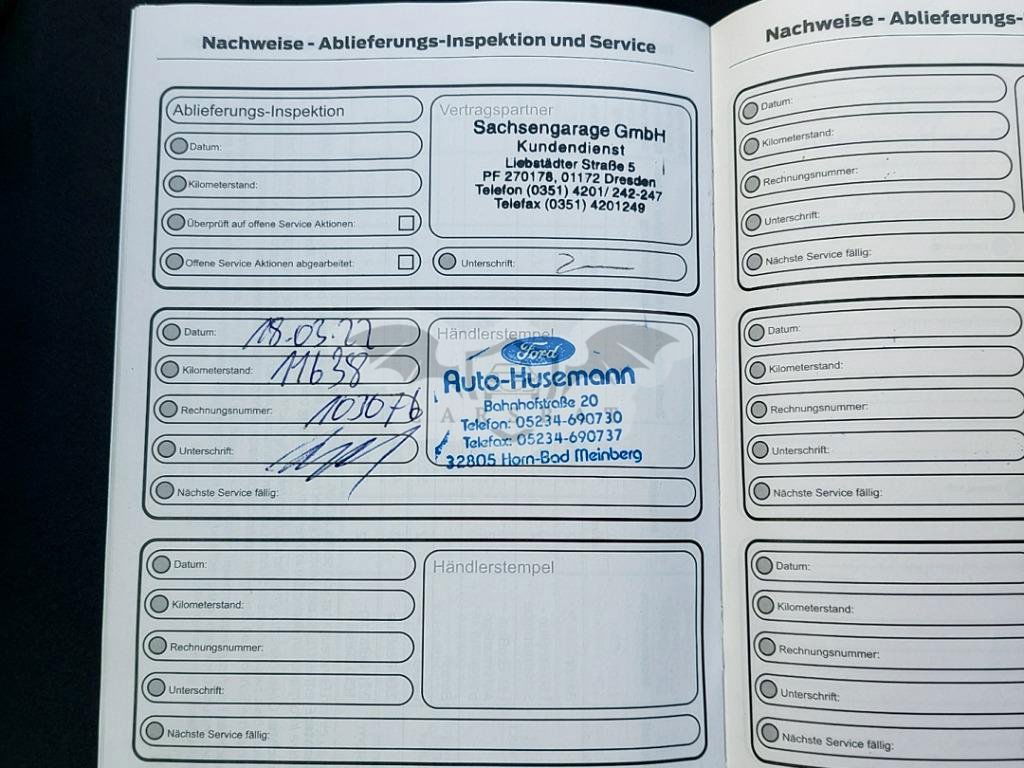 Nachweise - Ablieferungs-Inspektion und Service
Ablieferungs-Inspektion
Datum:
Kilometerstand:
Überprüft auf offene Service Aktionen:
Offene Service Aktionen abgearbeitet:
Vertragspartner
Sachsengarage GmbH
Kundendienst
Liebstädter Straße 5
PF 270178, 01172 Dresden
Telefon (0351) 4201/ 242-247
Telefax (0351) 4201249
Unterschrift:
Datum: 18.03.22
Kilometerstand: 11638
Rechnungsnummer: 103076
Unterschrift:
Nächste Service fällig:
Händlerstempel
Ford
Auto-Husemann
Bahnhofstraße 20
Telefon: 05234-690730
Telefax: 05234-690737
32805 Horn-Bad Meinberg
Datum:
Kilometerstand:
Rechnungsnummer:
Unterschrift:
Nächste Service fällig:
Händlerstempel
Nachweise - Ablieferungs-
Datum:
Kilometerstand:
Rechnungsnummer:
Unterschrift:
Nächste Service fällig:
Datum:
Kilometerstand:
Rechnungsnummer:
Unterschrift:
Nächste Service fällig:
Datum:
Kilometerstand:
Rechnungsnummer:
Unterschrift:
Nächste Service fällig: